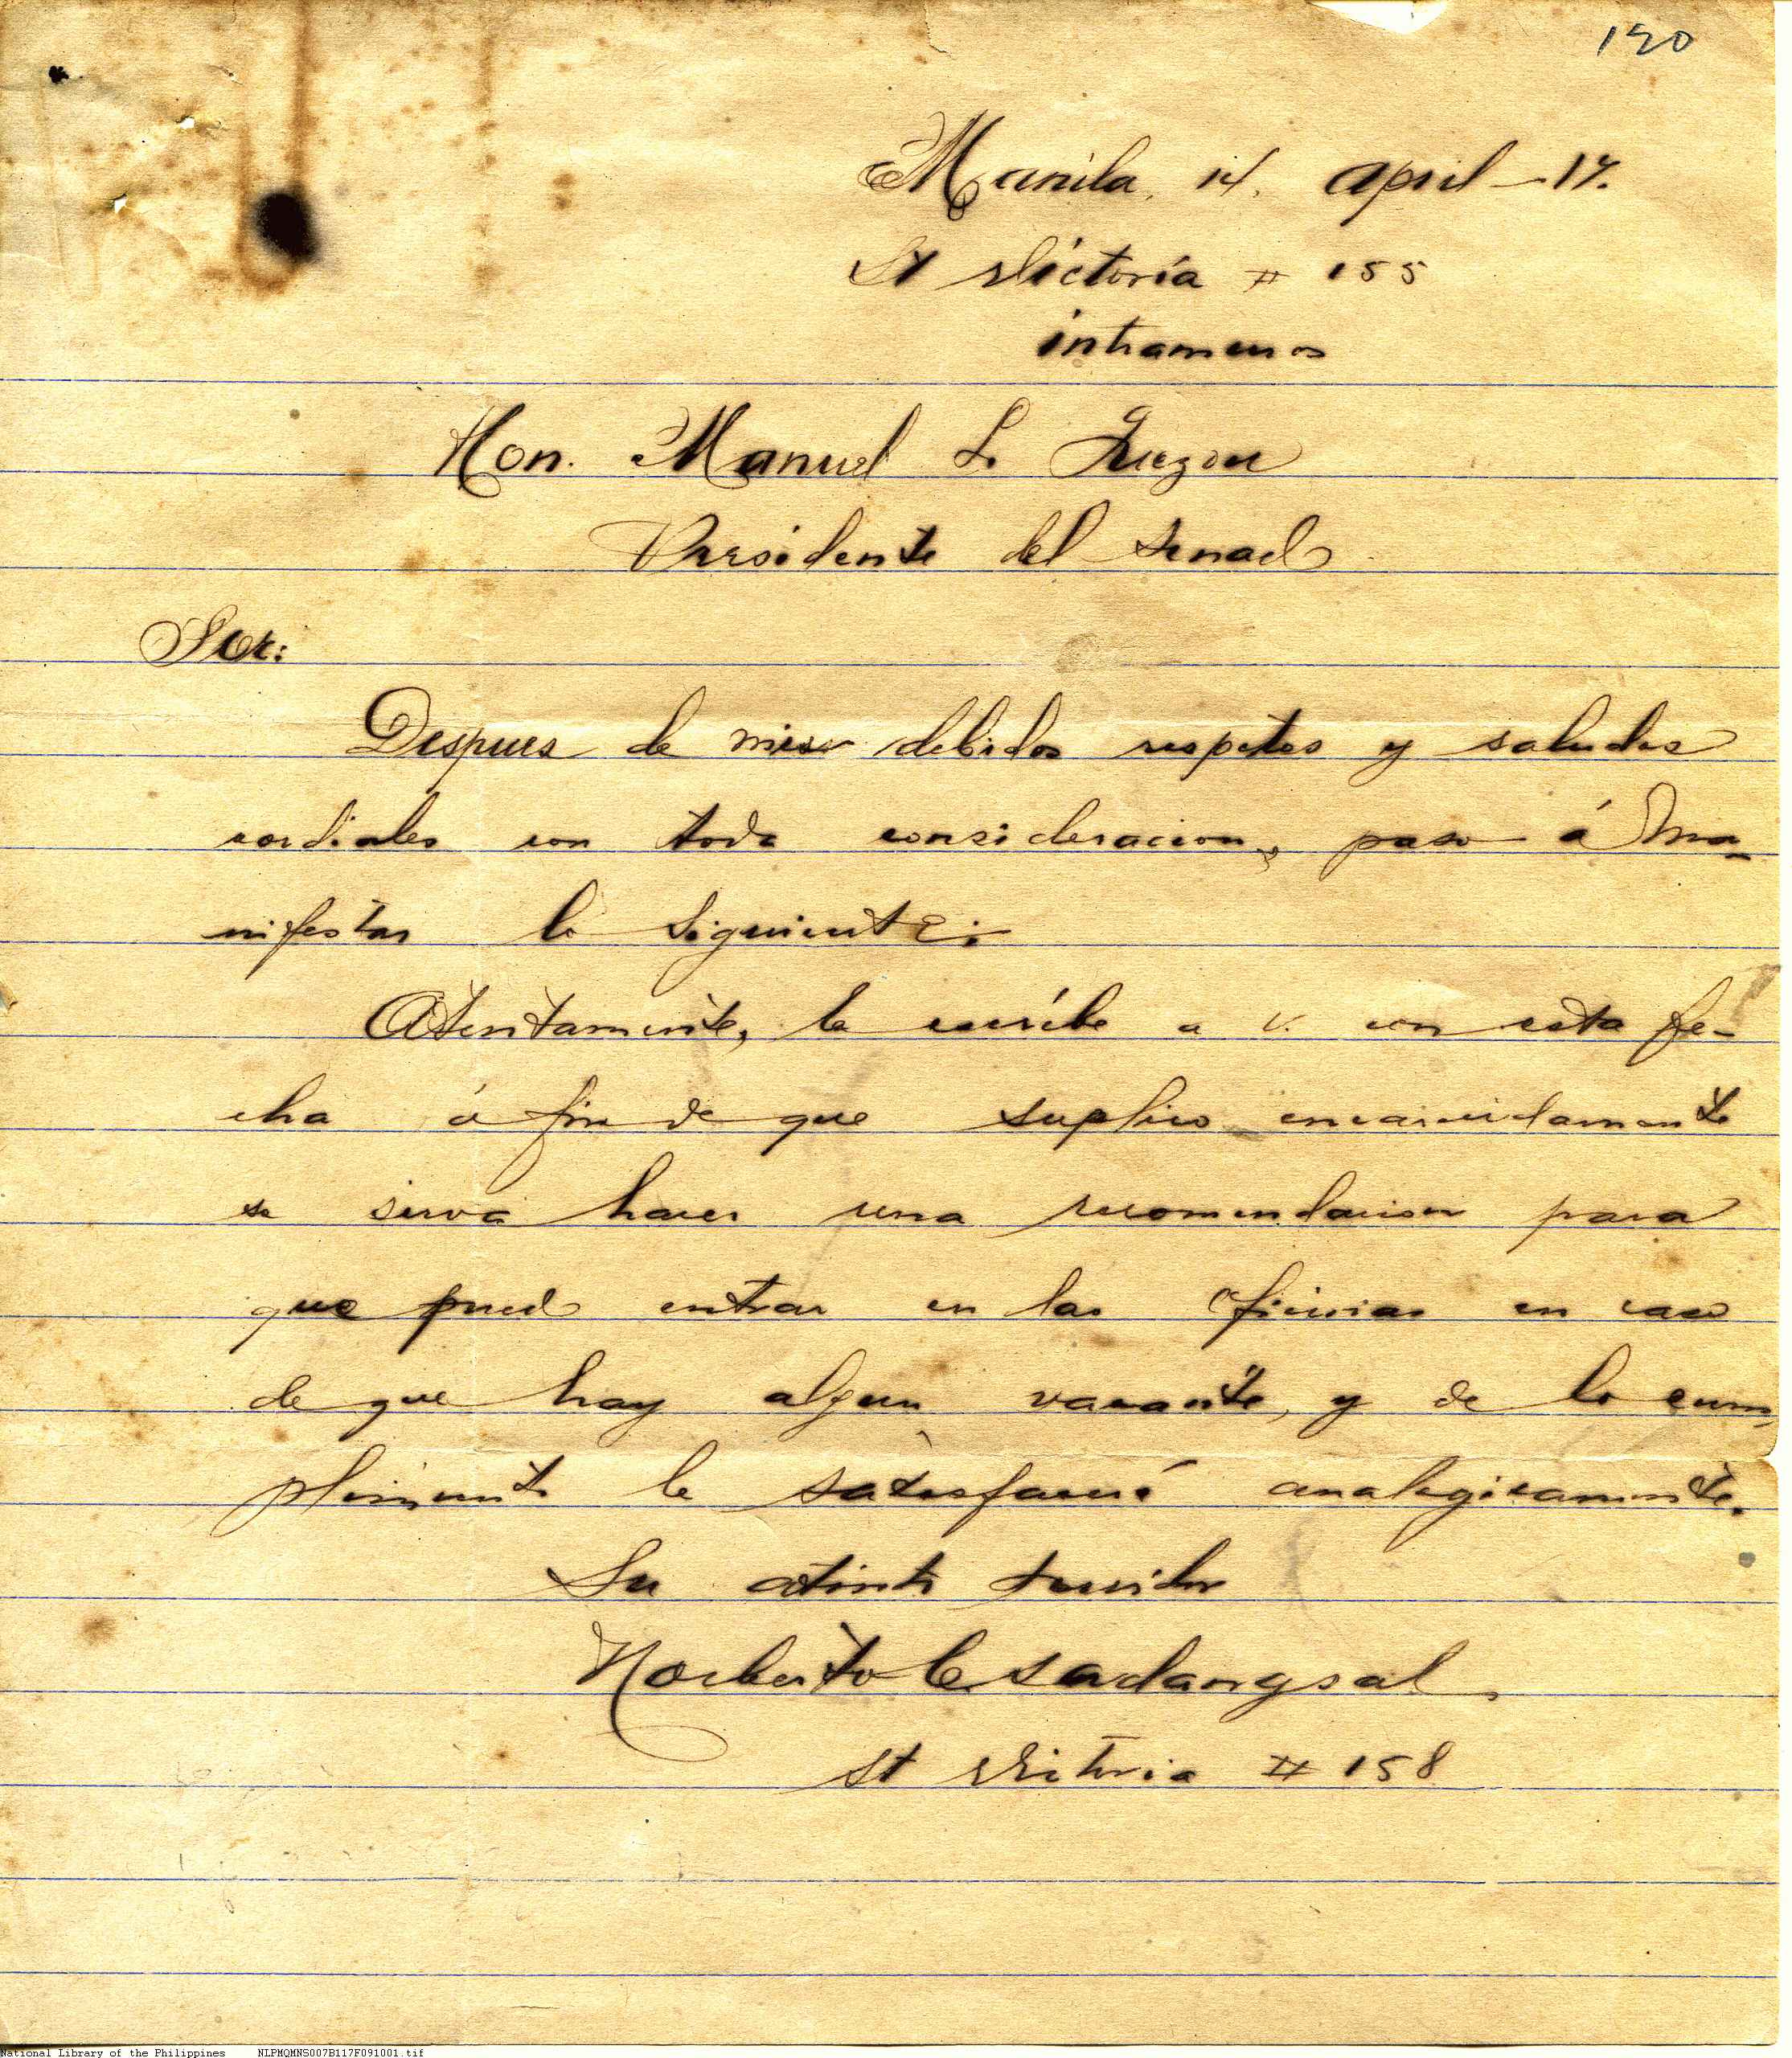 150
Manila, 14, april - 17.
St Victoria # 155
intramuros
Hon. Manuel L. Quezon
Presidente del Senado
Sor:
Despues de mis debidos respetos y saludos
cordiales con toda consideracion, paso á ma-
nifestar lo siguiente:
Atentamente, le escribe a V. con esta fe-
cha á fin de que suplico encarecidamente
se sirva hacer una recomendacion para
que puedo entrar en las oficinas en caso
de que hay algun vacante, y de lo cum-
plimiento le satisfaceré analogicamente.
Su atento servidor
Norberto C Sadangsal
St Victoria # 158
National Library of the Philippines NLPMQMNS007B117F091001.tif